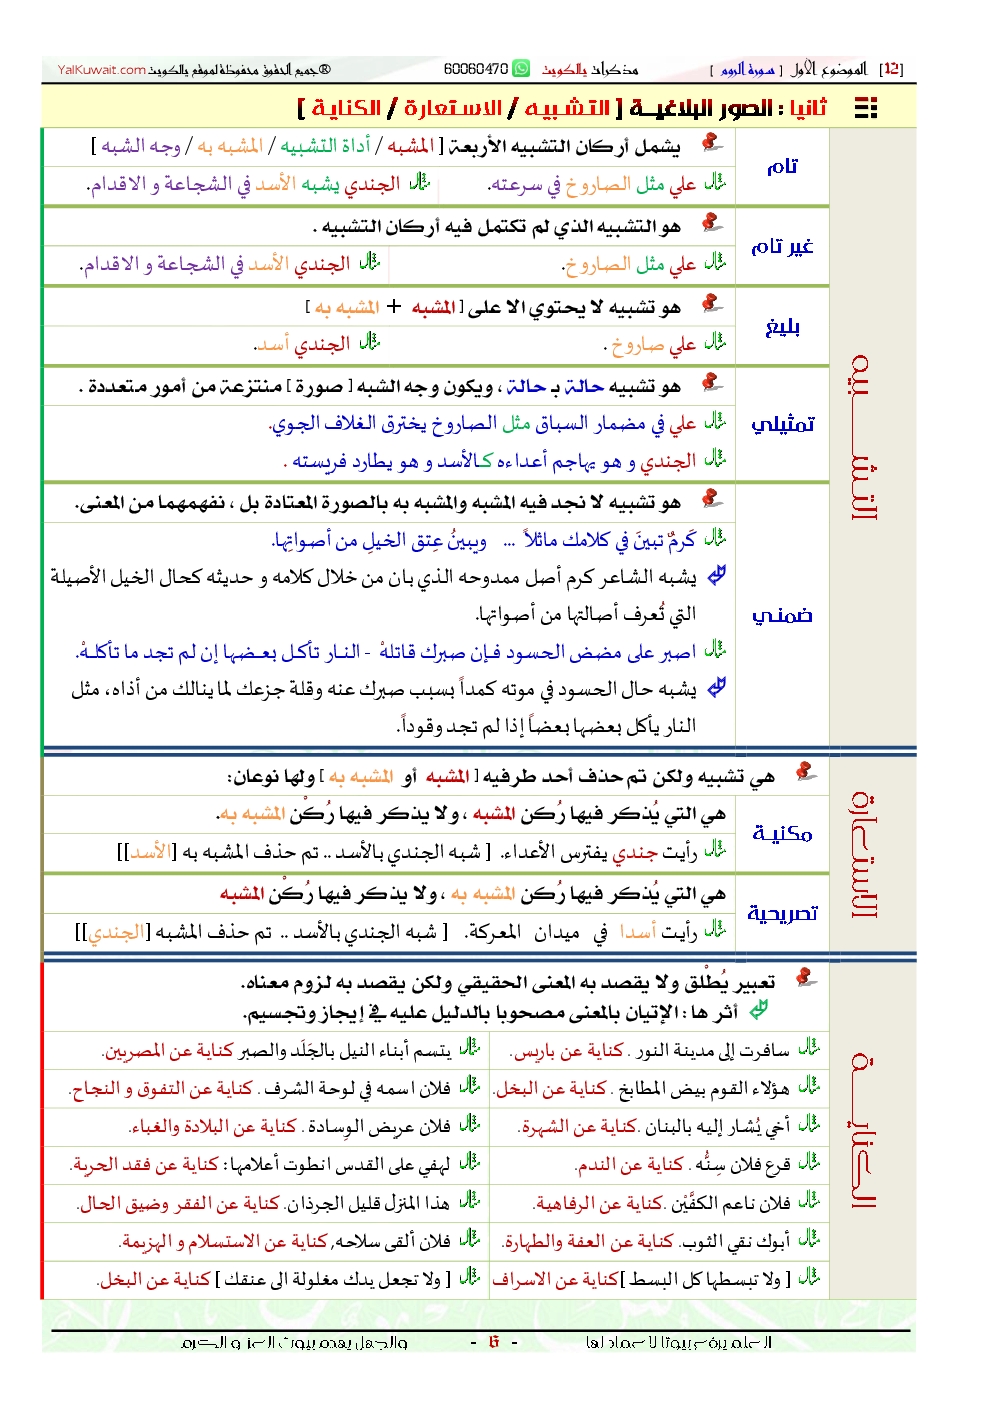 [12] الموضوع الأول [ سورة الروم ] مذكرات يالكويت 60060470 ®جميع الحقوق محفوظة لموقع يالكويت YalKuwait.com
ثانيا : الصور البلاغية [ التشبيه / الاستعارة / الكناية ]
التشبيه
تام
يشمل أركان التشبيه الأربعة [ المشبه / أداة التشبيه / المشبه به / وجه الشبه ]
مثال علي مثل الصاروخ في سرعته. مثال الجندي يشبه الأسد في الشجاعة و الاقدام.
غير تام
هو التشبيه الذي لم تكتمل فيه أركان التشبيه .
مثال علي مثل الصاروخ. مثال الجندي الأسد في الشجاعة و الاقدام.
بليغ
هو تشبيه لا يحتوي الا على [ المشبه + المشبه به ]
مثال علي صاروخ . مثال الجندي أسد.
تمثيلي
هو تشبيه حالة بـ حالة ، ويكون وجه الشبه [ صورة ] منتزعة من أمور متعددة .
مثال علي في مضمار السباق مثل الصاروخ يخترق الغلاف الجوي.
مثال الجندي و هو يهاجم أعداءه كـالأسد و هو يطارد فريسته .
ضمني
هو تشبيه لا نجد فيه المشبه والمشبه به بالصورة المعتادة بل ، نفهمهما من المعنى.
مثال كَرمٌ تبينَ في كلامك ماثلاً ... ويبينُ عِتق الخيلِ من أصواتِها.
يشبه الشاعر كرم أصل ممدوحه الذي بان من خلال كلامه و حديثه كحال الخيل الأصيلة
التي تُعرف أصالتها من أصواتها.
مثال اصبر على مضض الحسود فإن صبرك قاتلهْ - النار تأكل بعضها إن لم تجد ما تأكلهْ.
يشبه حال الحسود في موته كمداً بسبب صبرك عنه وقلة جزعك لما ينالك من أذاه، مثل
النار يأكل بعضها بعضاً إذا لم تجد وقوداً.
الاستعارة
هي تشبيه ولكن تم حذف أحد طرفيه [ المشبه أو المشبه به ] ولها نوعان:
مكنية
هي التي يُذكر فيها رُكن المشبه ، ولا يذكر فيها رُكْن المشبه به.
مثال رأيت جندي يفترس الأعداء. [ شبه الجندي بالأسد .. تم حذف المشبه به [الأسد]]
تصريحية
هي التي يُذكر فيها رُكن المشبه به ، ولا يذكر فيها رُكْن المشبه
مثال رأيت أسدا في ميدان المعركة. [ شبه الجندي بالأسد .. تم حذف المشبه [الجندي]]
الكناية
تعبير يُطْلق ولا يقصد به المعنى الحقيقي ولكن يقصد به لزوم معناه.
أثر ها : الإتيان بالمعنى مصحوبا بالدليل عليه في إيجاز وتجسيم.
مثال سافرت إلى مدينة النور . كناية عن باريس. مثال يتسم أبناء النيل بالجَلَد والصبر كناية عن المصريين.
مثال هؤلاء القوم بيض المطابخ . كناية عن البخل. مثال فلان اسمه في لوحة الشرف . كناية عن التفوق و النجاح.
مثال أخي يُشار إليه بالبنان .كناية عن الشهرة. مثال فلان عريض الوِسادة . كناية عن البلادة والغباء.
مثال قرع فلان سِنُّه . كناية عن الندم. مثال لهفي على القدس انطوت أعلامها: كناية عن فقد الحرية.
مثال فلان ناعم الكفَّيْن .كناية عن الرفاهية. مثال هذا المنزل قليل الجرذان. كناية عن الفقر وضيق الحال.
مثال أبوك نقي الثوب. كناية عن العفة والطهارة. مثال فلان ألقى سلاحه, كناية عن الاستسلام و الهزيمة.
مثال [ ولا تبسطها كل البسط ]كناية عن الاسراف مثال [ ولا تجعل يدك مغلولة الى عنقك ] كناية عن البخل.
العلم يرفع بيوتا لا عماد لها - 6 - والجهل يهدم بيوت العز والكرم